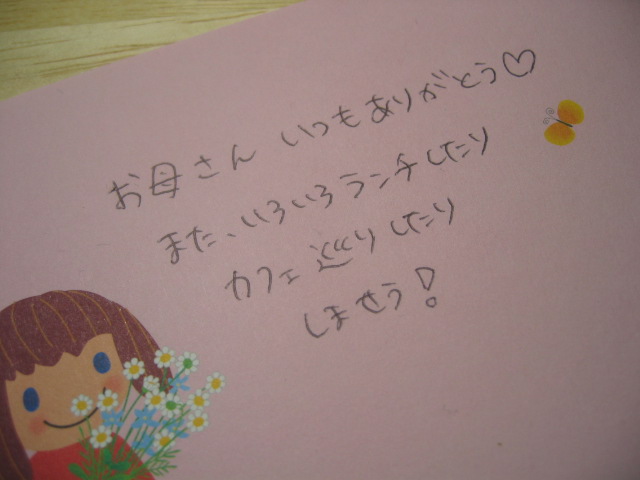 お母さん いつもありがとう♡
また、いろいろランチしたり
カフェ巡りしたり
しませう!